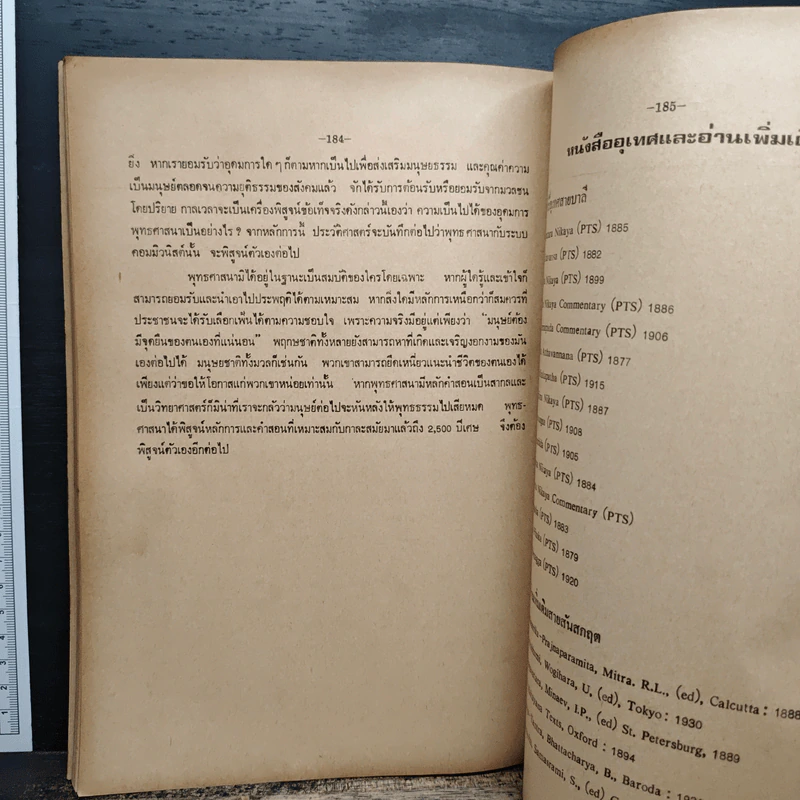 -184-
ยิ่ง หากเรายอมรับว่าอุดมการใด ๆ ก็ตามหากเป็นไปเพื่อส่งเสริมมนุษยธรรม และคุณค่าความ
เป็นมนุษย์ตลอดจนความยุติธรรมของสังคมแล้ว จักได้รับการต้อนรับหรือยอมรับจากมวลชน
โดยปริยาย กาลเวลาจะเป็นเครื่องพิสูจน์ข้อเท็จจริงดังกล่าวนี้เองว่า ความเป็นไปได้ของอุดมการ
พุทธศาสนาเป็นอย่างไร ? จากหลักการนี้ ประวัติศาสตร์จะบันทึกต่อไปว่าพุทธศาสนากับระบบ
คอมมิวนิสต์นั้น จะพิสูจน์ตัวเองต่อไป
พุทธศาสนามิได้อยู่ในฐานะเป็นสมบัติของใครโดยเฉพาะ หากผู้ใดรู้และเข้าใจก็
สามารถยอมรับและนำเอาไปประพฤติได้ตามเหมาะสม หากสิ่งใดมีหลักการเหนือกว่าก็สมควรที่
ประชาชนจะได้รับเลือกเฟ้นได้ตามความชอบใจ เพราะความจริงมีอยู่แต่เพียงว่า "มนุษย์ต้อง
มีจุดยืนของตนเองที่แน่นอน" พฤกษชาติทั้งหลายยังสามารถหาที่เกิดและเจริญงอกงามของมัน
เองต่อไปได้ มนุษยชาติทั้งมวลก็เช่นกัน พวกเขาสามารถยึดเหนี่ยวแนะนำชีวิตของตนเองได้
เพียงแต่ว่าขอให้โอกาสแก่พวกเขาหน่อยเท่านั้น หากพุทธศาสนามีหลักคำสอนเป็นสากลและ
เป็นวิทยาศาสตร์ก็มิน่าที่เราจะกลัวว่ามนุษย์ต่อไปจะหันหลังให้พุทธธรรมไปเสียหมด พุทธ-
ศาสนาได้พิสูจน์หลักการและคำสอนที่เหมาะสมกับกาละสมัยมาแล้วถึง 2,500 ปีเศษ จึงต้อง
พิสูจน์ตัวเองอีกต่อไป
-185-
หนังสืออุเทศและอ่านเพิ่ม
สายบาลี
Nikaya (PTS) 1885
(PTS) 1882
Nikaya (PTS) 1899
Nikaya Commentary (PTS) 1886
Commentary (PTS) 1906
(PTS) 1877
(PTS) 1915
Nikaya (PTS) 1887
(PTS) 1908
(PTS) 1905
Nikaya (PTS) 1884
Nikaya Commentary (PTS)
(PTS) 1883
(PTS) 1879
(PTS) 1920
สายสันสกฤต
Prajnaparamita, Mitra. R.L., (ed), Calcutta : 1888
Wogihara, U, (ed), Tokyo : 1930
Minaev, I.P., (ed) St. Petersburg, 1889
Texts, Oxford : 1894
Bhattacharya, B., Baroda :
S., (ed)